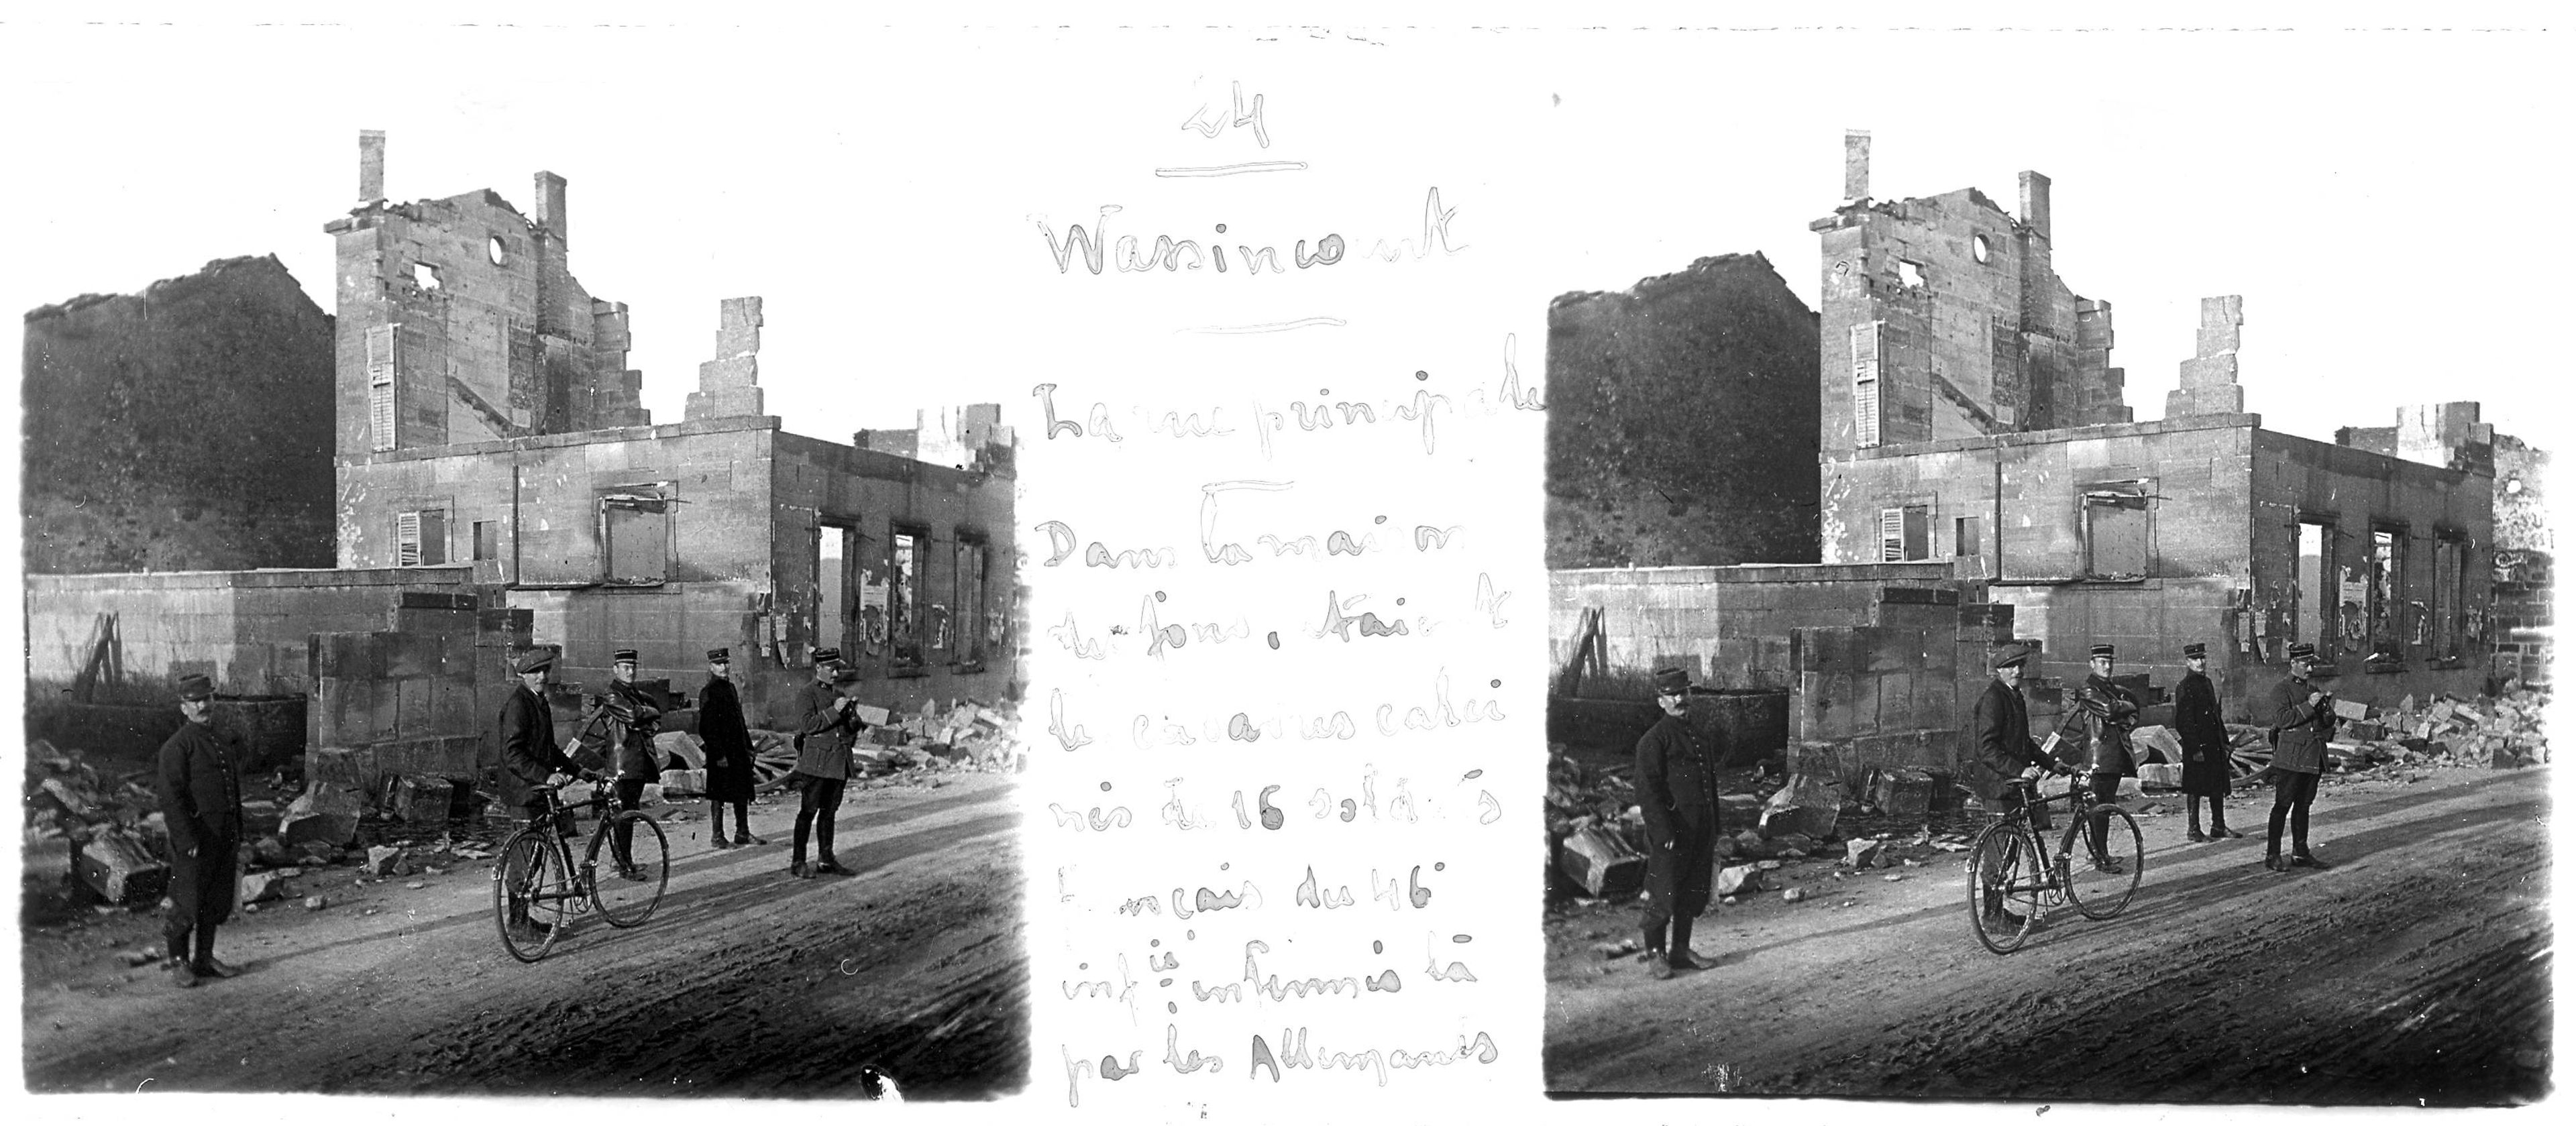 24
Wassincourt
La rue principale
Dans la maison
de fond, étaient
le cadavres calci
nés de 16 soldats
Français du 46e
infie enfermés là
par les Allemands